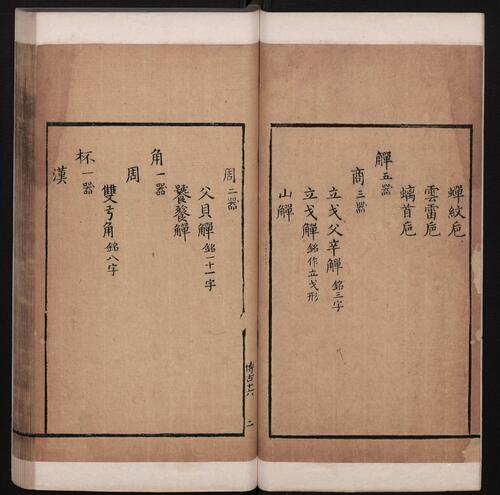 蟬紋巵
雲雷巵
螭首巵
觶五器
商三器
立戈父辛觶銘三字
立戈觶銘作立戈形
山觶
周二器
父貝觶銘一十一字
饕餮觶
角一器
周
雙弓角銘八字
杯一器
漢
博古十六 二